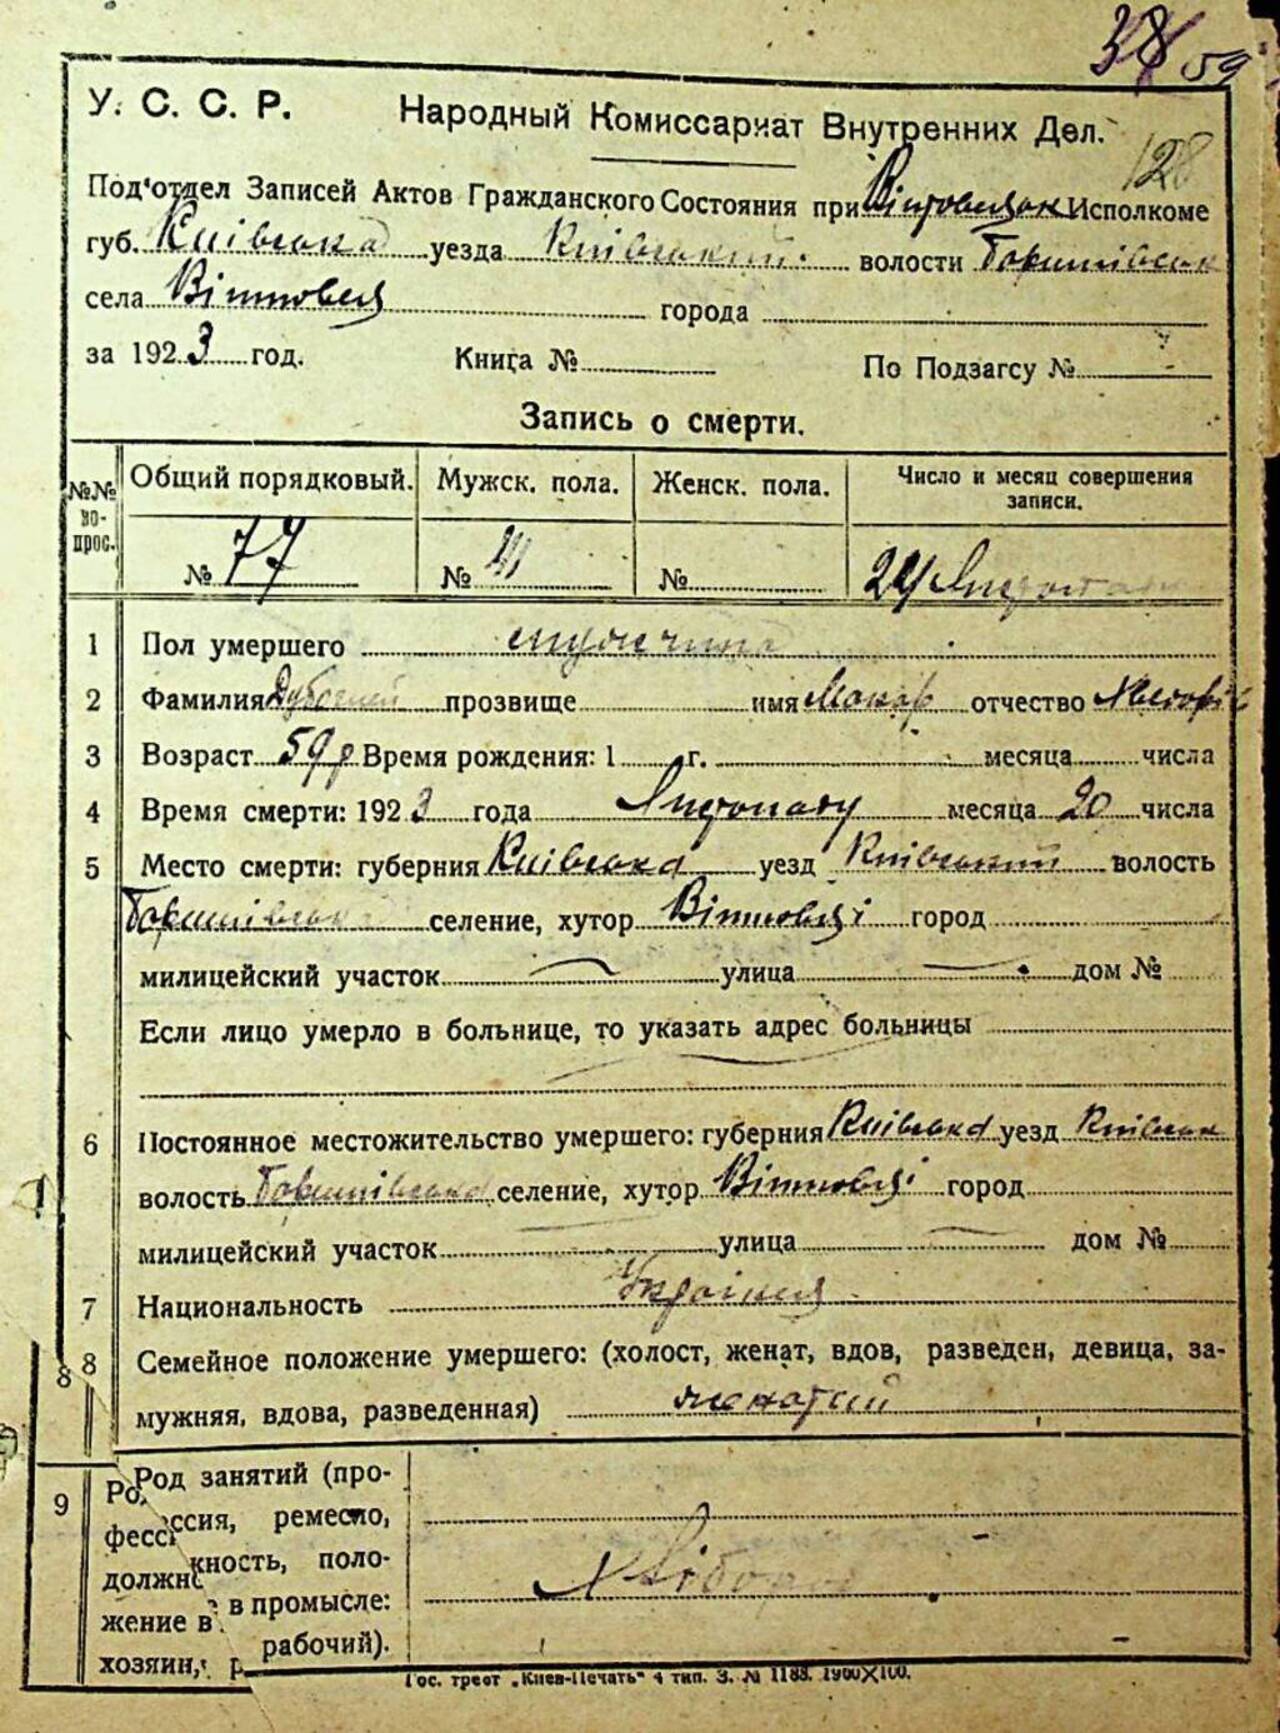 38 59
У. С. С. Р. Народный Комиссариат Внутренних Дел.
128
Под'отдел Записей Актов Гражданского Состояния при Исполкоме
губ. Київська уезда Київський волости
села города
за 1923 год. Книга № По Подзагсу №
Запись о смерти.
№№ вопрос. Общий порядковый. Мужск. пола. Женск. пола. Число и месяц совершения записи.
№ 77 № 41 № 24 Листопада
1 Пол умершего мужчина
2 Фамилия прозвище имя Макар отчество
3 Возраст 59 р Время рождения: 1 г. месяца числа
4 Время смерти: 1923 года Листопаду месяца 20 числа
5 Место смерти: губерния Київська уезд Київський волость
селение, хутор город
милицейский участок улица дом №
Если лицо умерло в больнице, то указать адрес больницы
6 Постоянное местожительство умершего: губерния Київська уезд Київськ
волость селение, хутор город
милицейский участок улица дом №
7 Национальность Українец
8 8 Семейное положение умершего: (холост, женат, вдов, разведен, девица, за-
мужняя, вдова, разведенная) женатий
9 Род занятий (про-
фессия, ремесло,
должность, поло-
жение в промысле:
хозяин, рабочий).
Хлібороб
Гос. трест „Киев-Печать" 4 тип. З. № 1188. 1900X100.